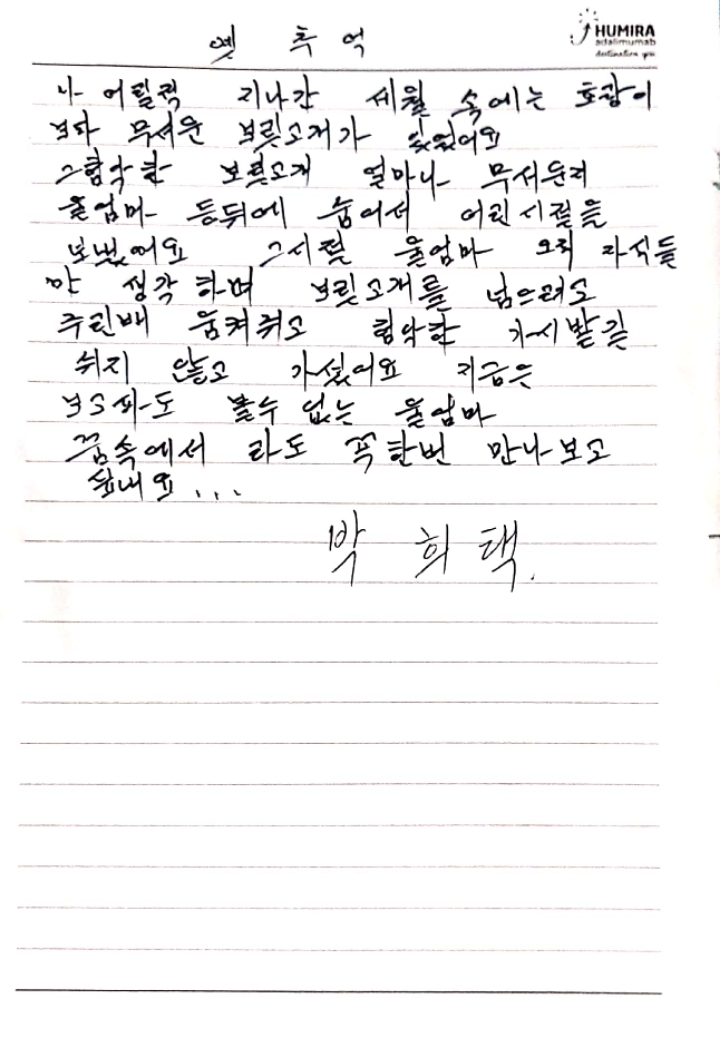 옛 추억
HUMIRA
adalimumab
destination you
나 어릴적 지나간 세월 속에는 호랑이
보다 무서운 보릿고개가 있었어요
그험악한 보릿고개 얼마나 무서운지
울엄마 등뒤에 숨어서 어린시절을
보냈어요 그시절 울엄마 오직 자식들
만 생각 하며 보릿고개를 넘으려고
주린배 움켜쥐고 험악한 가시밭길
쉬지 않고 가셨어요 지금은
보고파도 볼수 없는 울엄마
꿈속에서 라도 꼭한번 만나보고
싶네요...
박희택.